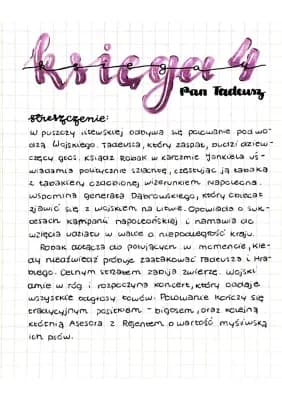 księga 4
Pan Tadeusz
streszczenie:
W puszczy litewskiej odbywa się polowanie pod wo-
dzą Wojskiego. Tadeusza, który zaspał, budzi dziew-
częcy głos. Ksiądz Robak w karczmie Jankiela uś-
wiadamia politycznie szlachtę, częstując ją tabaką
z tabakiery ozdobionej wizerunkiem Napoleona.
Wspomina generała Dąbrowskiego, który obiecał
zjawić się z wojskiem na Litwie. Opowiada o suk-
cesach kampanii napoleońskiej i namawia do
wzięcia udziału w walce o niepodległość kraju.
Robak dołącza do polujących w momencie, kie-
dy niedźwiedź próbuje zaatakować Tadeusza i Hra-
biego. Celnym strzałem zabija zwierzę. Wojski
dmie w róg i rozpoczyna koncert, który oddaje
wszystkie odgłosy łowów. Polowanie kończy się
tradycyjnym posiłkiem - bigosem, oraz kolejną
kłótnią Asesora z Rejentem o wartość myśliwską
ich psów.